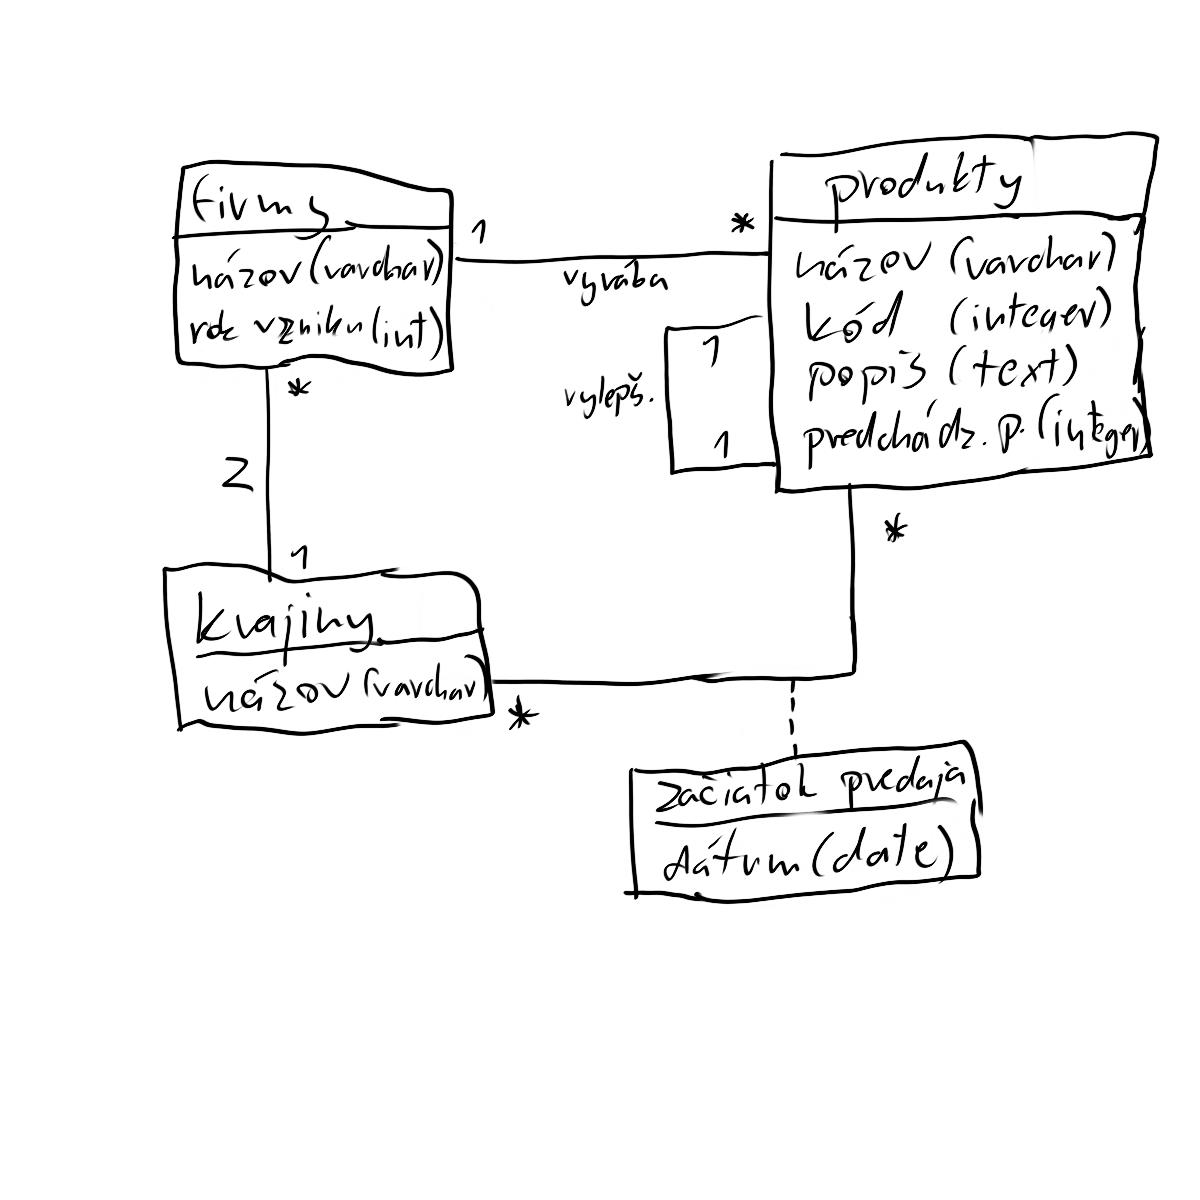 firmy
názov (varchar)
rok vzniku (int)
1
*
vyrába
produkty
názov (varchar)
kód (integer)
popis (text)
predchádz. p. (integer)
1
vylepš.
1
*
z
1
krajiny
názov (varchar)
*
*
začiatok predaja
dátum (date)